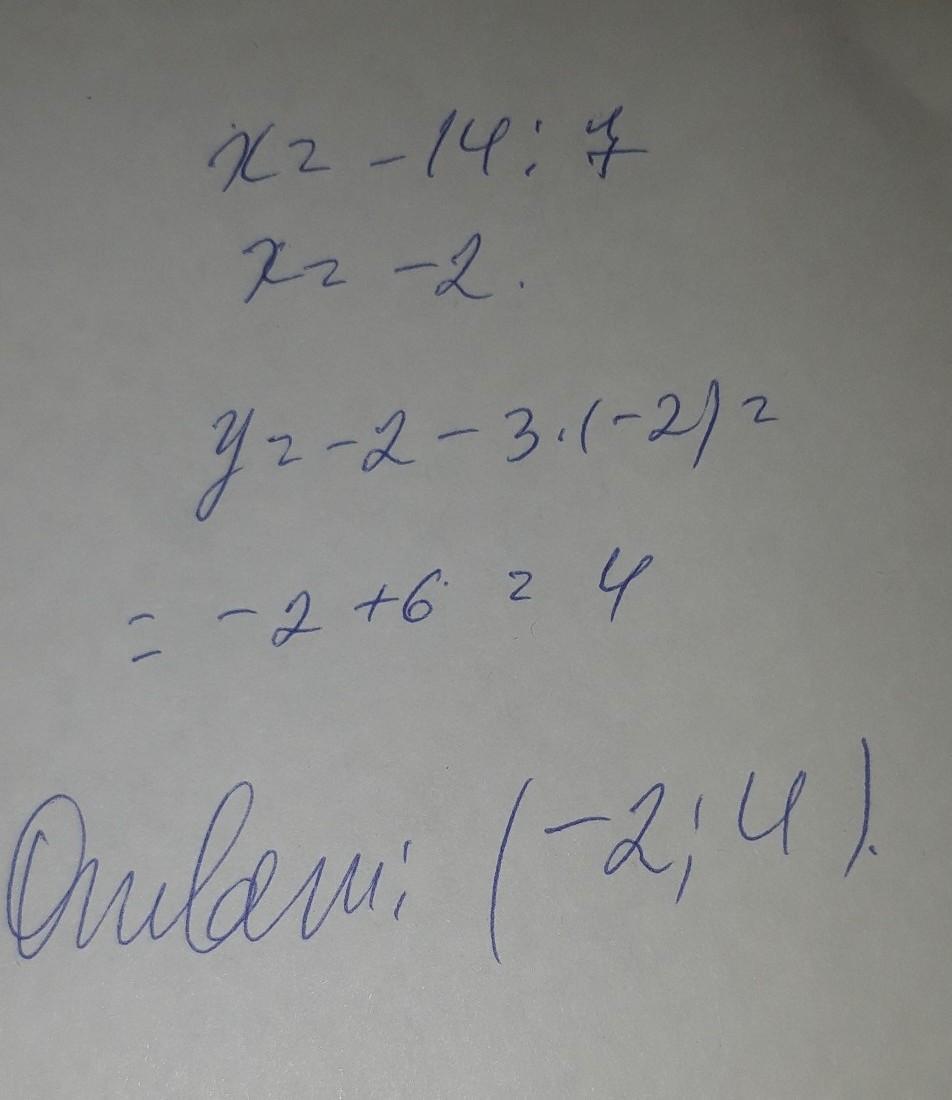 x = -14 : 7
x = -2.
y = -2 - 3 · (-2) =
= -2 + 6 = 4
Ответ: (-2; 4).